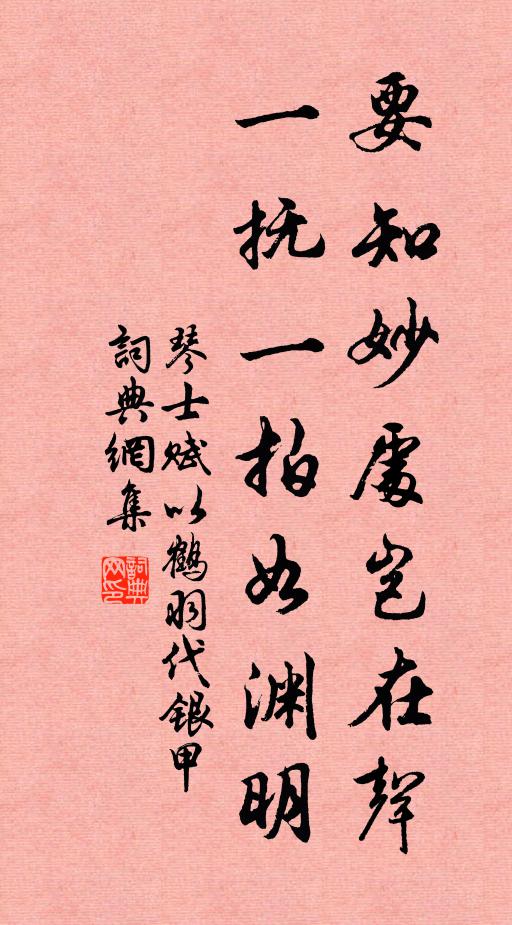 要知妙處豈在聲
一抚一拍如渊明
琴士赋以鶴羽代银甲
詞典網集
詞典网印